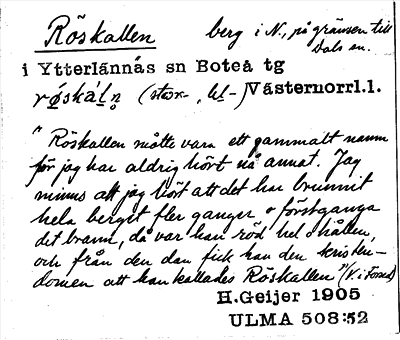 Röskallen berg i N., på gränsen till
Dals sn.
i Ytterlännäs sn Boteå tg
Västernorrl.l.
" Röskallen måtte vara ett gammalt namn
för jag har aldrig hört nå annat. Jag
minns att jag hört att det har brunnit
hela berget fler ganger, o förstganga
det brann, då var han röd hel o hållen,
och från den dan fick han den kristen-
domen att han kallades Röskallen"
H.Geijer 1905
ULMA 508:52